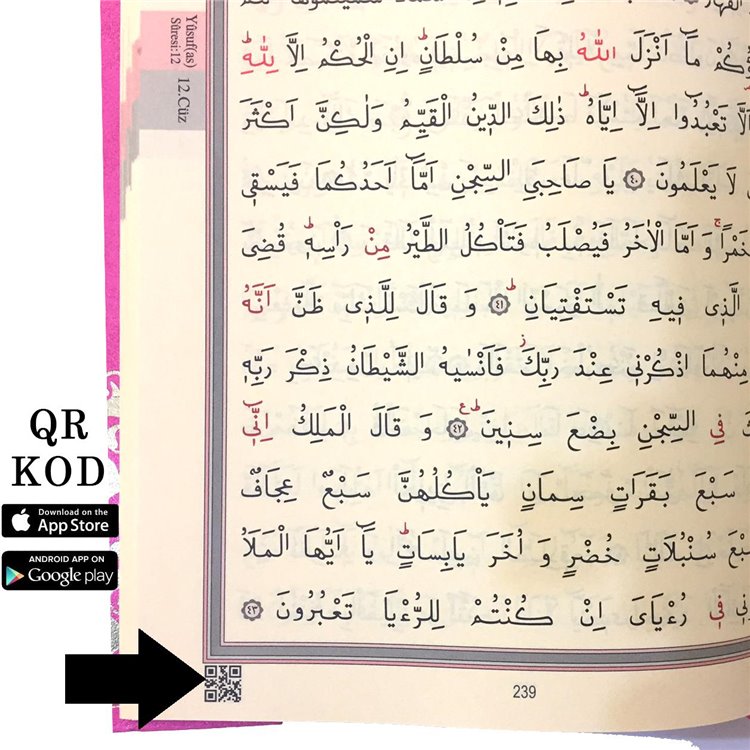 Yûsuf(as)
Sûresi:12
12.Cüz
مَٓا اَنْزَلَ اللّٰهُ بِهَا مِنْ سُلْطَانٍۜ اِنِ الْحُكْمُ اِلَّا لِلّٰهِۜ
تَعْبُدُٓوا اِلَّٓا اِيَّاهُۜ ذٰلِكَ الدّ۪ينُ الْقَيِّمُ وَلٰكِنَّ اَكْثَرَ
لَا يَعْلَمُونَ ﴿٤٠﴾ يَا صَاحِبَيِ السِّجْنِ اَمَّٓا اَحَدُكُمَا فَيَسْق۪ي
خَمْراًۚ وَاَمَّا الْاٰخَرُ فَيُصْلَبُ فَتَأْكُلُ الطَّيْرُ مِنْ رَأْسِه۪ۜ قُضِيَ
الَّذ۪ي ف۪يهِ تَسْتَفْتِيَانِۜ ﴿٤١﴾ وَقَالَ لِلَّذ۪ي ظَنَّ اَنَّهُ
مِنْهُمَا اذْكُرْن۪ي عِنْدَ رَبِّكَۘ فَاَنْسٰيهُ الشَّيْطَانُ ذِكْرَ رَبِّه۪
فِي السِّجْنِ بِضْعَ سِن۪ينَۜ ﴿٤٢﴾ وَقَالَ الْمَلِكُ اِنّ۪ٓي
سَبْعَ بَقَرَاتٍ سِمَانٍ يَأْكُلُهُنَّ سَبْعٌ عِجَافٌ
سَبْعَ سُنْبُلَاتٍ خُضْرٍ وَاُخَرَ يَابِسَاتٍۜ يَٓا اَيُّهَا الْمَلَأُ
ف۪ي رُءْيَايَ اِنْ كُنْتُمْ لِلرُّءْيَا تَعْبُرُونَ ﴿٤٣﴾
239
QR
KOD
Download on the
App Store
ANDROID APP ON
Google play